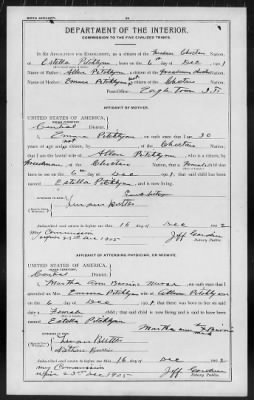 DEPARTMENT OF THE INTERIOR.
COMMISSION TO THE FIVE CIVILIZED TRIBES.
IN RE APPLICATION FOR ENROLLMENT, as a citizen of the Choctaw Nation,
of Estella Pitchlynn, born on the 6th day of Dec, 1901
Name of Father: Allen Pitchlynn a citizen of the Nation.
Name of Mother: Emma Pitchlynn not a citizen of the Choctaw Nation.
Postoffice, Eagle Town I.T.
AFFIDAVIT OF MOTHER.
UNITED STATES OF AMERICA,
INDIAN TERRITORY,
Central District.
I, Emma Pitchlynn, on oath state that I am 30
years of age and not a citizen of the Choctaw Nation;
that I am the lawful wife of Allen Pitchlynn, who is a citizen, by
Freedman, of the Choctaw Nation; that a Female child was
born to me on the 6th day of Dec, 1901, that said child has been named
Estella Pitchlynn, and is now living.
WITNESSES TO MARK:
Subscribed and sworn to before me this 16 day of Dec, 1902
My Commission Jeff Gardner
expires 23rd Dec 1905 Notary Public.
AFFIDAVIT OF ATTENDING PHYSICIAN, OR MIDWIFE.
UNITED STATES OF AMERICA,
INDIAN TERRITORY,
Central District.
I, Martha Ann, a, on oath state that I
attended on Mrs. Emma Pitchlynn, wife of Allen Pitchlynn
on the 6 day of Dec, 1901; that there was born to her on said
date a Female child; that said child is now living and is said to have been
named Estella Pitchlynn
Martha Ann
WITNESSES TO MARK:
Subscribed and sworn to before me this 16 day of Dec, 1902
My Commission Jeff Gardner
expires 23rd Dec 1905 Notary Public.